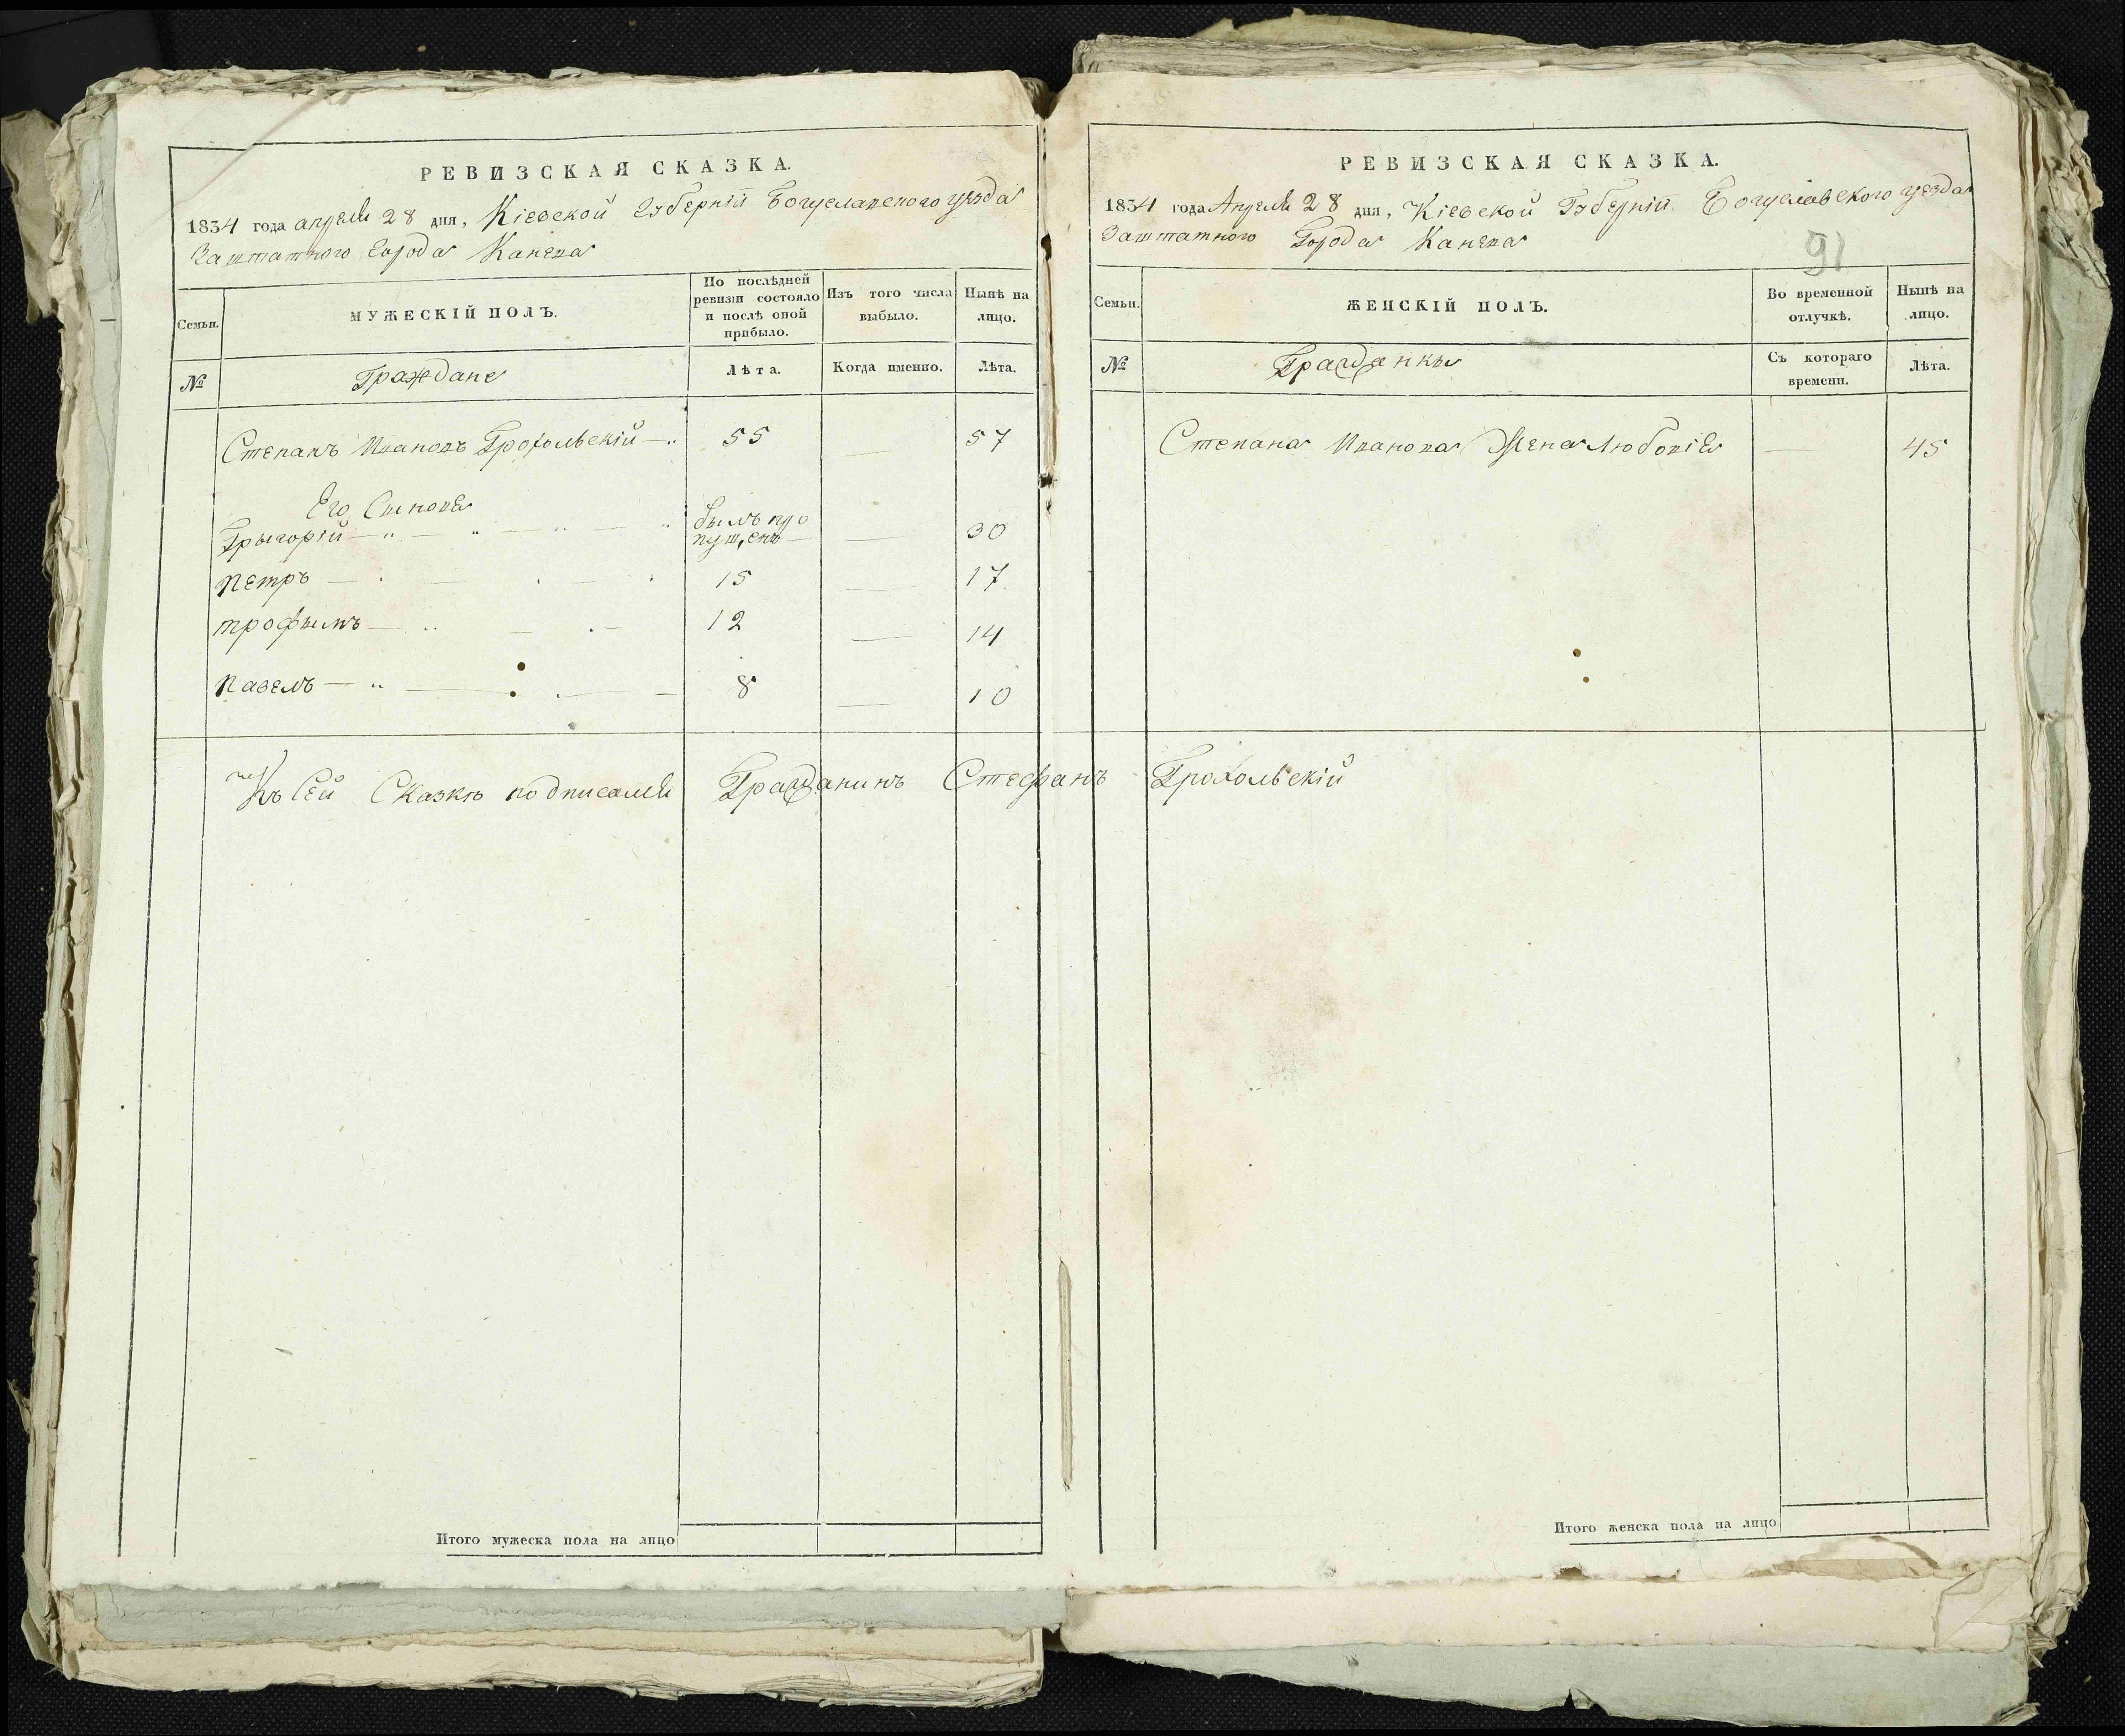 РЕВИЗСКАЯ СКАЗКА.
1834 года апреля 28 дня, Кіевской Губерніи Богуславского уезда
Заштатного Города Канева
Семьи.
МУЖЕСКІЙ ПОЛЪ.
По послѣдней ревизіи состояло и послѣ оной прибыло.
Изъ того числа выбыло.
Нынѣ на лицо.
№
Граждане
Лѣта.
Когда именно.
Лѣта.
Степанъ Ивановъ Грохольскій 55 57
Его Сынове
Грыгорій былъ пропущенъ 30
Петръ 15 17
трофымъ 12 14
Павелъ 8 10
Къ Сей Сказкѣ подписался Гражданинъ Стефанъ Грохольскій
Итого мужеска пола на лицо
РЕВИЗСКАЯ СКАЗКА.
1834 года Апреля 28 дня, Кіевской Губерніи Богуславского уезда
Заштатного Города Канева
91
Семьи.
ЖЕНСКІЙ ПОЛЪ.
Во временной отлучкѣ.
Нынѣ на лицо.
№
Гражданкы
Съ котораго времени.
Лѣта.
Степана Иванова Жена Любовіея 45
Итого женска пола на лицо